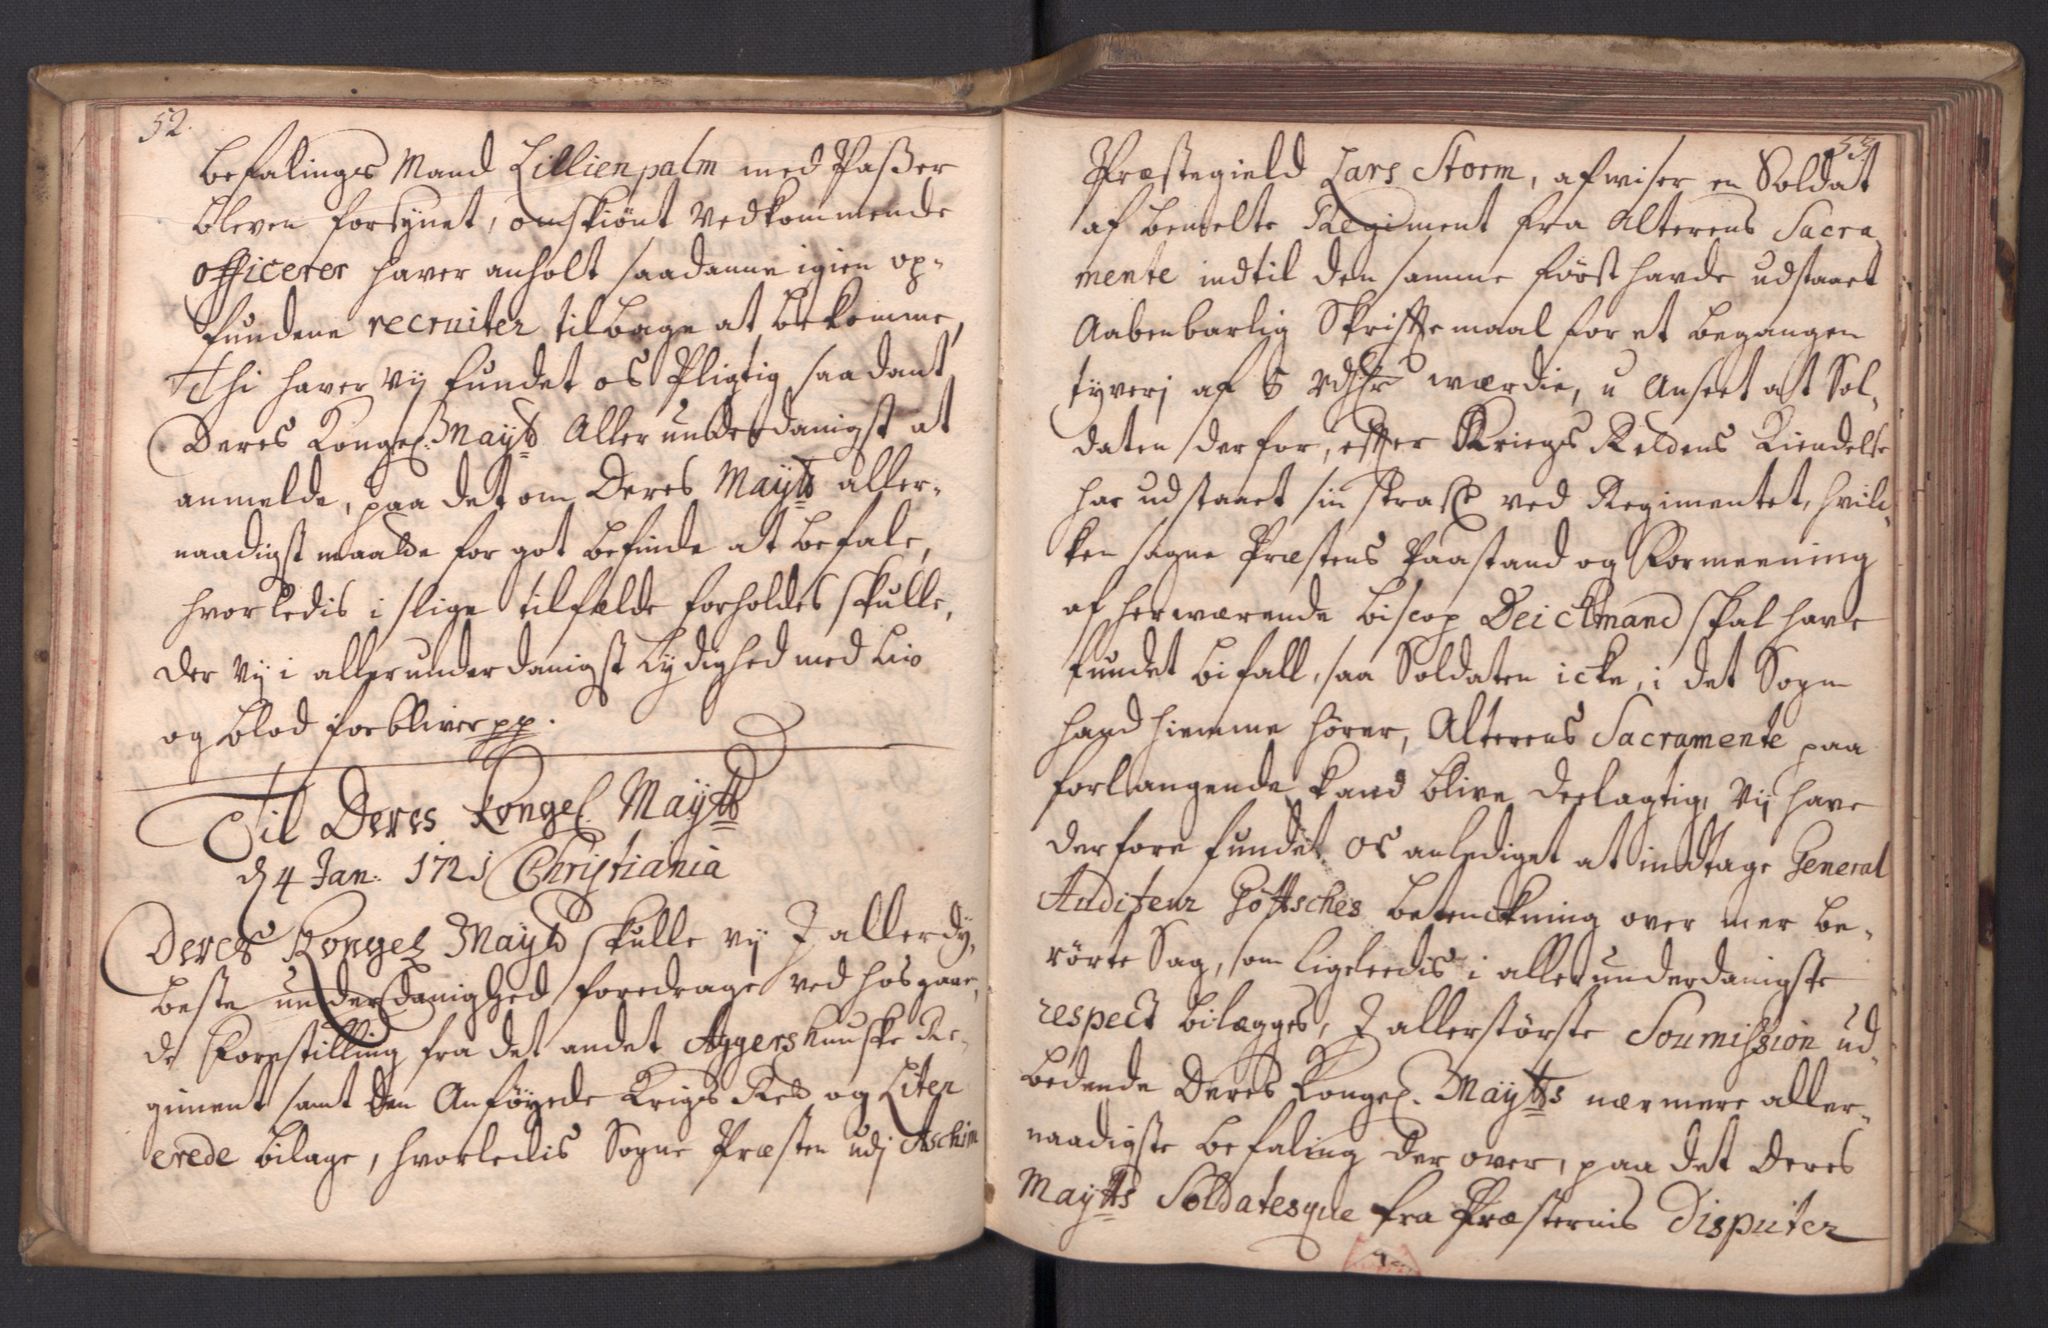 52.
befalings Mand Lillienpalm med Passer
bleven forsynet, omskiønt Vedkommende
officerer haver anholt saadanne igien op-
fundene recruiter tilbage at bekomme,
Thi haver vij fundet os Pligtig saadant
Deres Kongel: Mayts Allerunderdanigst at
anmelde, paa det om Deres Mayts aller-
naadigst maatte for got befinde at befale,
hvorledis i slige tilfælde forholdes skulle,
der vij i allerunderdanigst Lydighed med Liv
og blod forbliver pp.
Til Deres Kongel. Maytts
d 4 Jan. 1721 Christiania
Deres Kongel Mayts skulle vij J allerdy-
beste underdanighed foredrage ved hosgaaen-
de Forestilling fra det andet Aggershuuske Re-
giment samt den Anføyede Krigs Ret og Liter
erede bilage, hvorledis Sogne Præsten udj Aschim
53
Præstegield Lars Storm, afwiser en Soldat
af bemelte Regiment fra Alterens Sacra
mente indtil den samme først havde udstaaet
Aabenbarlig Skriftemaal for et begangen
tyverj af 5 Rdlr wærdie, u Anseet at Sol-
daten derfor, efter Kriegs Rettens Kiendelse
har udstaaet sin straf ved Regimentet, hvil-
ken sagne Præstens Paastand og Formeening
af herwærende biscop Deickmand skal have
fundet bifall, saa Soldaten icke, i det Sogn
hand hiemme hører, Alterens Sacramente paa
forlangende kand blive deelagtig, Vij have
derfore fundet os anlediget at indtage General
Auditeur Göttsches betenckning over mer be-
rörte Sag, som ligeledis i allerunderdanigste
respect bilægges, J allerstörste Soumission ud-
bedende Deres Kongel. Maytts nærmere aller-
naadigste befaling der over, paa det Deres
Maytts Soldatesque fra Præsternis Disputer